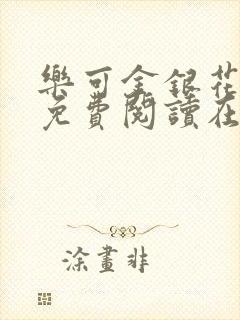 樂可金銀花
免費閱讀在
涂畫非